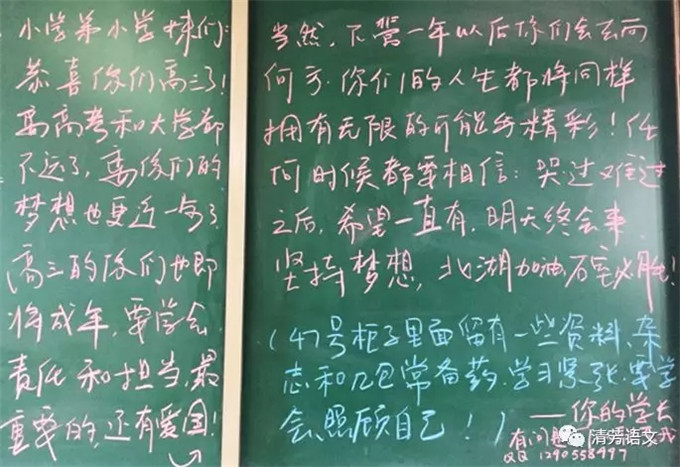 小学弟小学妹们:
恭喜你们高三了!
离高考和大学都
不远了,离你们的
梦想也更近一步了
高三的你们也即
将成年,要学会
责任和担当,最
重要的还有爱国!
当然,不管一年以后你们会去向
何方,你们的人生都将同样
拥有无限的可能与精彩!任
何时候都要相信:哭过难过
之后,希望一直有,明天终会来
坚持梦想,北湖加油 必胜!
(47号柜子里面留有一些资料、杂
志和几包常备药,学习紧张,要学
会照顾自己!)
——你的学长
有问题 我
QQ 1290558497
清芳语文